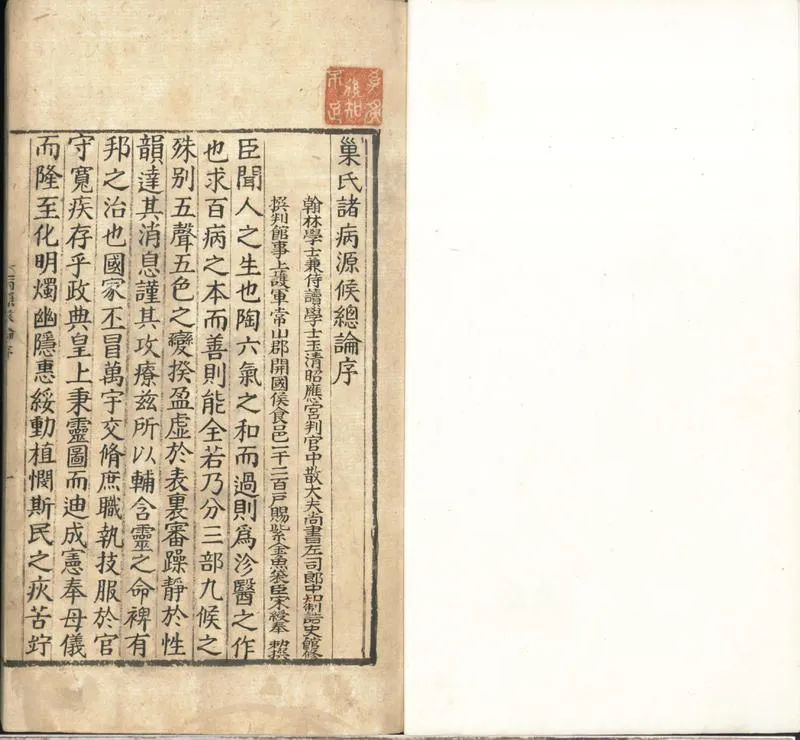 巢氏諸病源候總論序
翰林學士兼侍讀學士玉清昭應宮判官中散大夫尚書左司郎中知制誥史館修
撰判館事上護軍常山郡開國侯食邑一千二百戶賜紫金魚袋臣宋綬奉 勅撰
臣聞人之生也陶六氣之和而過則爲沴醫之作
也求百病之本而善則能全若乃分三部九候之
殊别五聲五色之變揆盈虛於表裏審躁靜於性
韻達其消息謹其攻療兹所以輔含靈之命裨有
邦之治也國家丕冒萬宇交脩庶職執技服於官
守寬疾存乎政典皇上秉靈圖而迪成憲奉母儀
而隆至化明燭幽隱惠綏動植憫斯民之疚苦竚